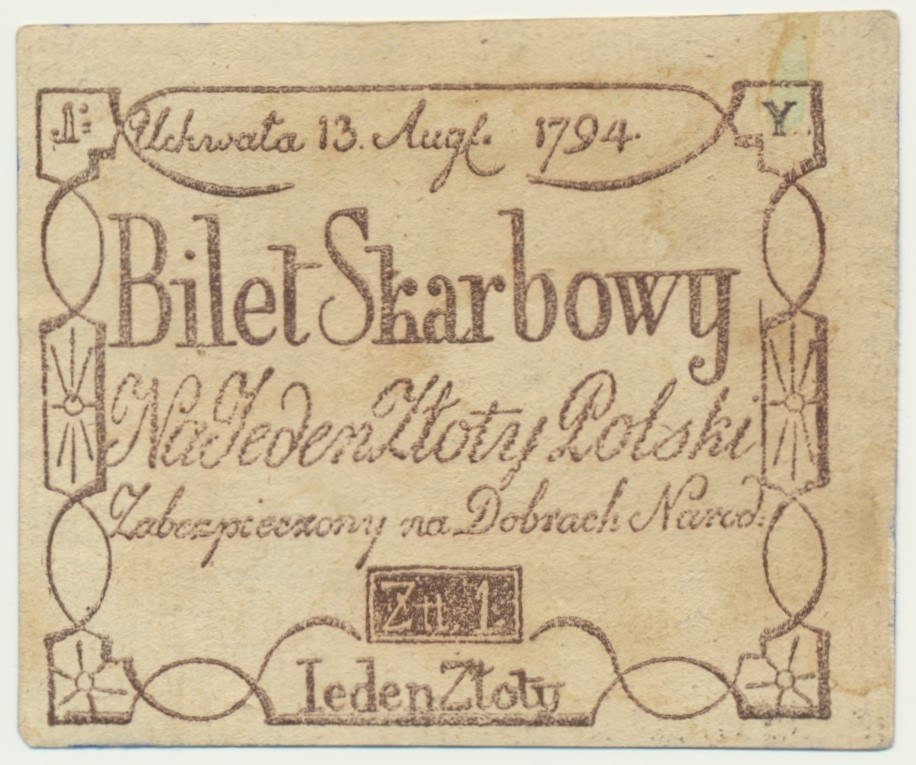 1: Uchwała 13. Augſ. 1794. Y
Bilet Skarbowy
Na Jeden Złoty Polski
Zabezpieczony na Dobrach Narod:
Złł. 1.
Ieden Złoty